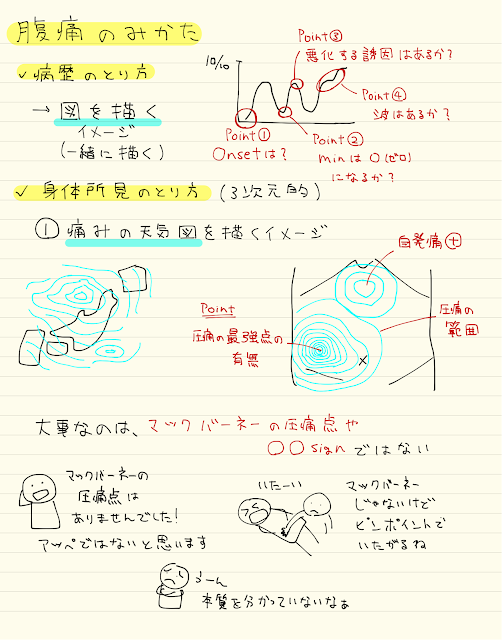 腹痛のみかた
✓病歴のとり方
→ 図を描く
イメージ
(一緒に描く)
10/10
Point③
悪化する誘因はあるか?
Point④
波はあるか?
Point①
Onsetは?
Point②
minは0(ゼロ)
になるか?
✓身体所見のとり方(3次元的)
①痛みの天気図を描くイメージ
自発痛⊕
Point
圧痛の最強点の
有無
圧痛の
範囲
×
大事なのは、マックバーネーの圧痛点や
〇〇signではない
マックバーネーの
圧痛点は
ありませんでした!
アッペではないと思います
いたーい
マックバーネー
じゃないけど
ピンポイントで
いたがるね
うーん
本質を分かっていないなぁ